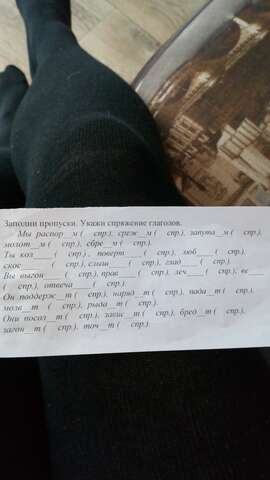 Заполни пропуски. Укажи спряжение глаголов.
Мы распор__м ( спр.), среж__м ( спр.), запута__м ( спр.),
молот__м ( спр.), сбре__м ( спр.).
Ты кол____ ( спр.) , поверт____ ( спр.), люб____ ( спр.),
скос____ ( спр.), слыш____ ( спр.), глад____ ( спр.).
Вы выгон____ ( спр.), прав____ ( спр.), леч____ ( спр.), ве____
( спр.), отвеча____ ( спр.).
Он поддерж__т ( спр.), наряд__т ( спр.), пада__т ( спр.),
мозв__т ( спр.), рыда__т ( спр.).
Они посол__т ( спр.), завис__т ( спр.), бред__т ( спр.),
загон__т ( спр.), точ__т ( спр.).